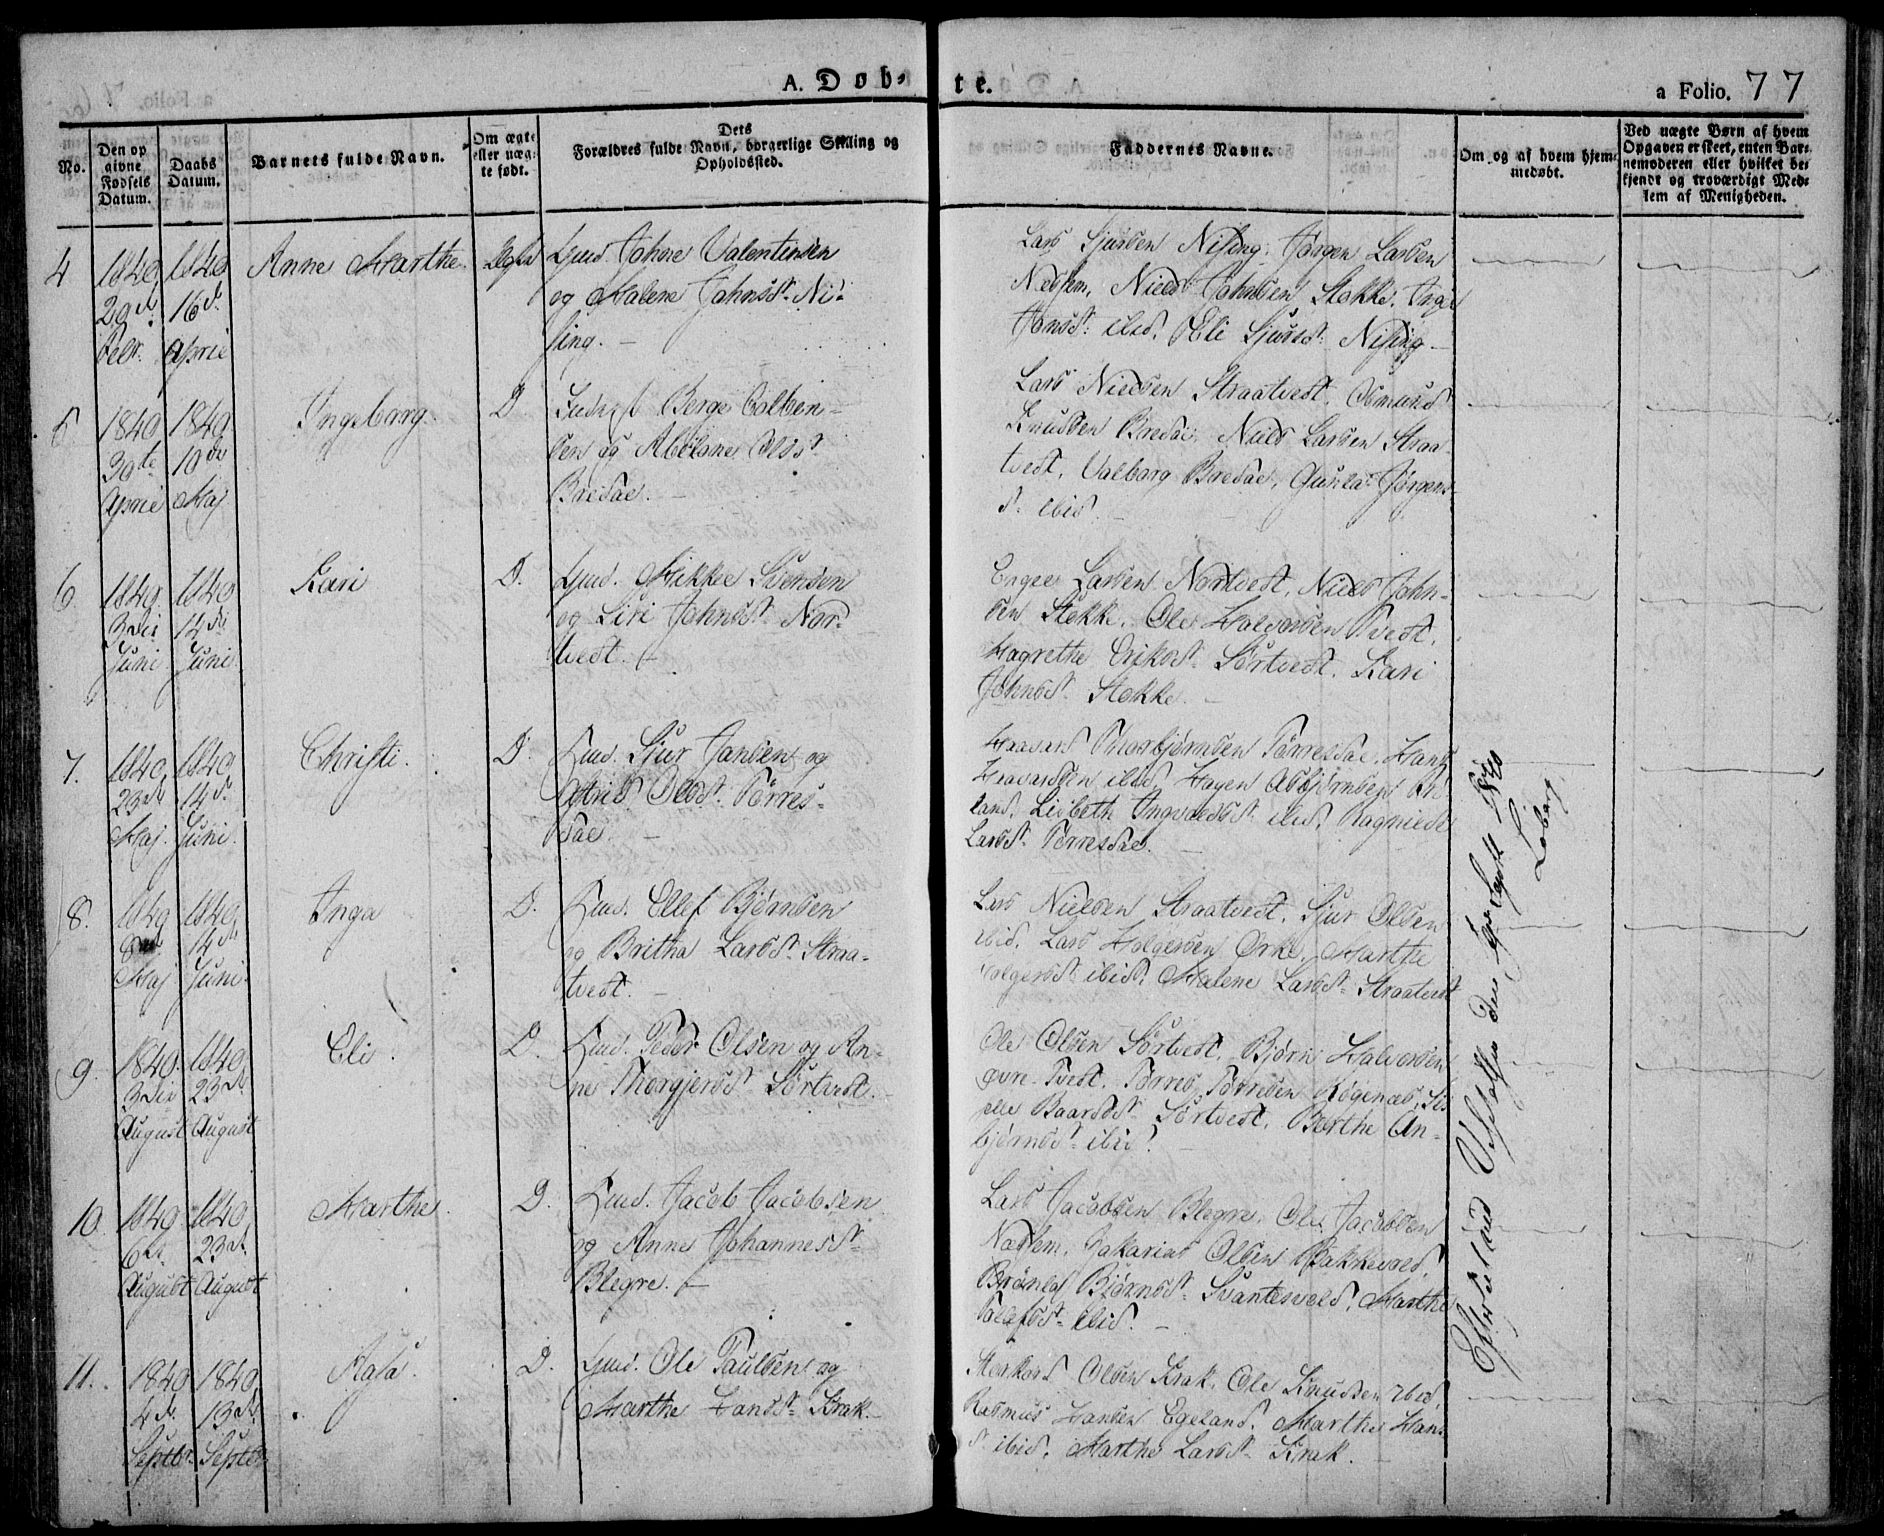 A. Døb-
te.
a Folio. 77
No.
Den op
givne
Fødsels
Datum.
Daabs
Datum.
Barnets fulde Navn.
Om ægte
eller uæg-
te født.
Dets
Forældres fulde Navn, borgerlige Stilling og
Opholdssted.
Faddernes Navne.
Om og af hvem hjem-
medøbt.
Ved uægte Børn af hvem
Opgaven er skeet, enten Bar-
nemoderen eller hvilket be-
kjendt og troværdigt Med-
lem af Menigheden.
4
1840
29de
Febr.
1840
16de
April
Anne Marthe
Ægte
Gmd. Johne Valentinsen
og Malene Johnsd. Ni-
sing.
Lars Sjursen Nising, Jørgen Larsen
Næshem, Niels Johnsen Stokke, Inge
Jonsd. ibid, Eli Sjursd. Nising
5
1840
30te
April
1840
10de
Maj
Ingeborg.
D
Berge Colben-
sen og Olsd.
Bredal.
Lars Nielsen Straatvedt, Osmund
Knudsen Bredal, Niels Larsen Straa-
tvedt, Valborg Bredal, Gunla Jørgens-
d. ibid.
6
1840
3die
Juni
1840
14de
Juni
Kari
D.
Gmd. Mikkel Svensen
og Siri Johnsd. Nor-
tvedt.
Engel Larsen Nortvedt, Niels John-
sen Stokke, Ole Halvorsen Tvedt,
Magrethe Eriksd. Sørtvedt, Kari
Johnsd. Stokke.
7.
1840
23de
Maj
1840
14de
Juni.
Christi.
D.
Gmd. Sjur Jansen og
Astrid Olsd. Tørres-
dal.
Haavard Thorbjørnsen Tørresdal, Hans
Haavardsen ibid, Hagen Asbjørnsen
land, Lisbeth Ingvaldsd. ibid, Ragnilde
Larsd. Tørresdal.
8.
1840
Maj
1840
14de
Juni.
Inga
D.
Gmd. Ellef Bjørnsen
og Britha Larsd. Straa-
tvedt.
Lars Nielsen Straatvedt, Sjur Olsen
ibid, Lars Holgersen Ørke, Marthe
Holgersd. ibid, Malene Larsd. Straatvedt
9
1840.
3die
August
1840
23de
August
Eli.
D.
Gmd. Peder Olsen og An-
ne Thorgjersd. Sørtvedt.
Ole Olsen Sørtvedt, Bjørn Halvorsen
øvre Tvedt, Tørres Tørresen Røgenæs, Si-
selle Baarsd. Sørtvedt, Berthe An-
bjørnsd. ibid.
10.
1840
6te
August
1840
23de
August
Marthe.
D.
Gmd. Jacob Jacobsen
og Anne Johannesd.
Blegre.
Lars Jacobsen Blegre, Ole Jacobsen
Næshem, Zakarias Olsen Bakkevold,
Brønla Bjørnsd. Svantesvold, Marthe
ibid.
11.
1840
4de
Septbr.
1840
13de
Septbr
Aasa.
D.
Gmd. Ole Paulsen og
Marthe Hansd. Krak.
Storkord Olsen Krak, Ole Knudsen ibid,
Rasmus Hansen Egeland, Marthe Hans-
d. ibid, Marthe Larsd. Krak.
Efterseet ved Visitatsen den
Loberg